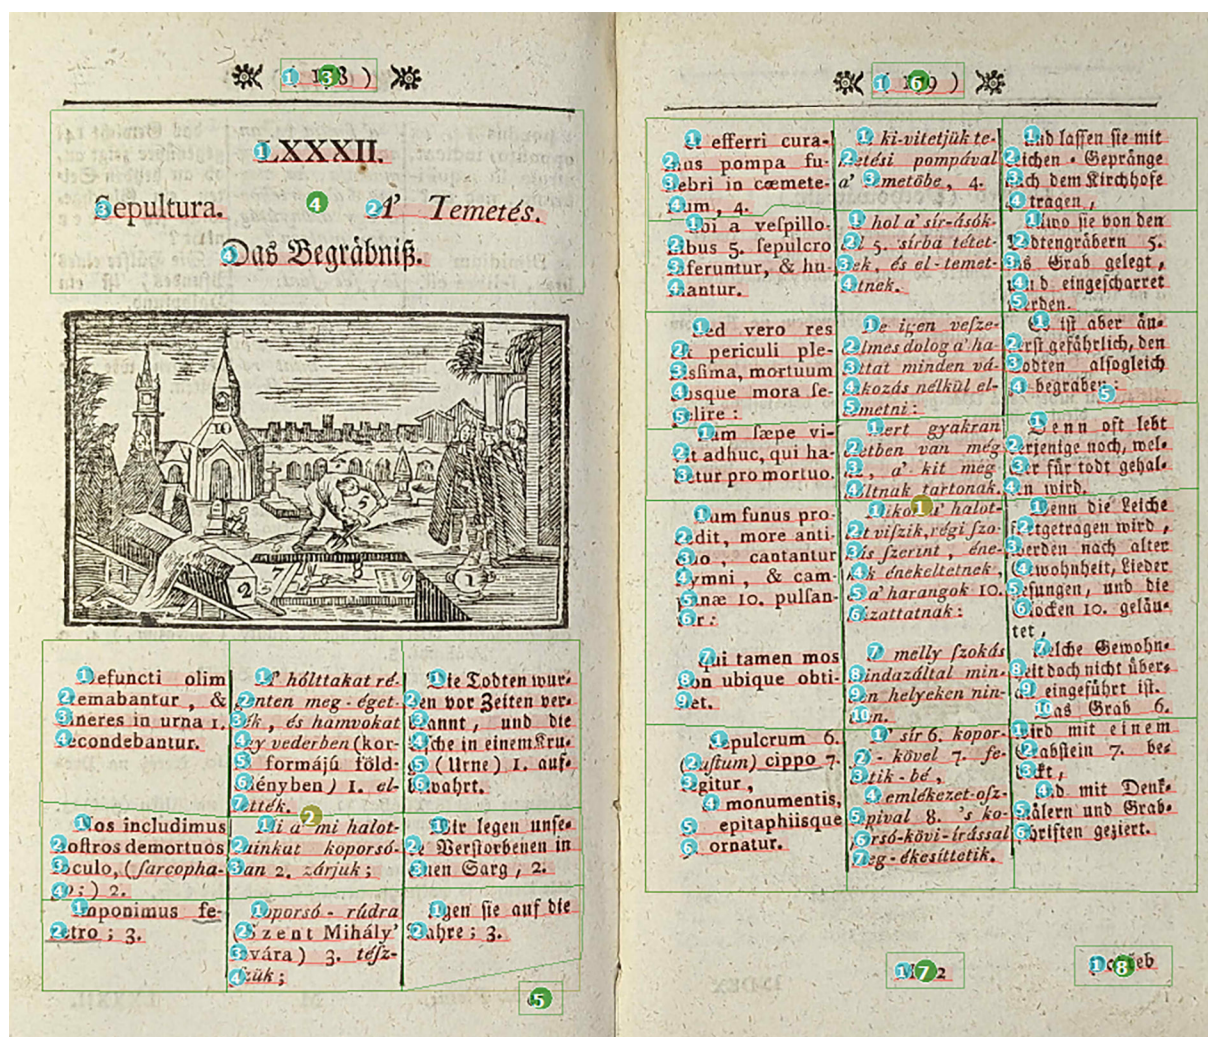 ( 198 )
LXXXII.
Sepultura. A' Temetés.
Das Begräbniß.
Defuncti olim
cremabantur, &
cineres in urna 1.
recondebantur.
Nos includimus
noſtros demortuos
loculo, (ſarcopha-
go;) 2.
Imponimus fe-
retro; 3.
A' hólttakat ré-
genten meg-éget-
ték, és hamvokat
egy vederben (kor-
ſó formájú föld-
edényben) 1. el-
tették.
Mi a' mi halot-
tainkat koporsó-
ban 2. zárjuk;
Koporsó-rúdra
(Szent Mihály'
lovára) 3. téſz-
ſzük;
Die Todten wur-
den vor Zeiten ver-
brannt, und die
Aſche in einem Kru-
ge (Urne) 1. auf-
bewahrt.
Wir legen unſe-
re Verſtorbenen in
einen Sarg, 2.
Legen ſie auf die
Bahre; 3.
( 199 )
Et efferri cura-
mus pompa fu-
nebri in cœmete-
rium, 4.
Ubi a veſpillo-
nibus 5. ſepulcro
inferuntur, & hu-
mantur.
Sed vero res
eſt periculi ple-
nisſima, mortuum
absque mora ſe-
pelire:
Nam ſæpe vi-
vit adhuc, qui ha-
betur pro mortuo.
Cum funus pro-
cedit, more anti-
quo, cantantur
hymni, & cam-
panæ 10. pulſan-
tur:
Qui tamen mos
non ubique obti-
net.
Sepulcrum 6.
(buſtum) cippo 7.
tegitur,
monumentis,
epitaphiisque
8. ornatur.
És ki-vitetjük te-
metési pompával
a' temetöbe, 4.
A' hol a' sír-ásók-
tól 5. sírba tétet-
nek, és el-temet-
tetnek.
De igen veſze-
delmes dolog a' ha-
lottat minden vá-
rakozás nélkül el-
temetni:
Mert gyakran
életben van még
az, a' kit meg
holtnak tartonak.
Mikor a' halot-
tat viſzik, régi ſzo-
kás ſzerint, éne-
kek énekeltetnek,
és a' harangok 10.
húzattatnak:
A' melly ſzokás
mindazáltal min-
den helyeken nin-
tſen.
A' sír 6. kopor-
só-kövel 7. fe-
detik-bé,
emlékezet-oſz-
lopival 8. 's ko-
porsó-kövi-írással
meg-ékesíttetik.
Und laſſen ſie mit
Leichen-Gepränge
nach dem Kirchhofe
4. tragen,
Allwo ſie von den
Todtengräbern 5.
ins Grab gelegt,
und eingeſcharret
werden.
Es iſt aber äu-
ßerſt gefährlich, den
Todten alſogleich
zu begraben:
Denn oft lebt
derjenige noch, wel-
cher für todt gehal-
ten wird.
Wenn die Leiche
fortgetragen wird,
werden nach alter
Gewohnheit, Lieder
geſungen, und die
Glocken 10. geläu-
tet,
Welche Gewohn-
heit doch nicht über-
all eingeführt iſt.
Das Grab 6.
wird mit einem
Grabſtein 7. be-
deckt,
Und mit Denk-
mälern und Grab-
ſchriften geziert.